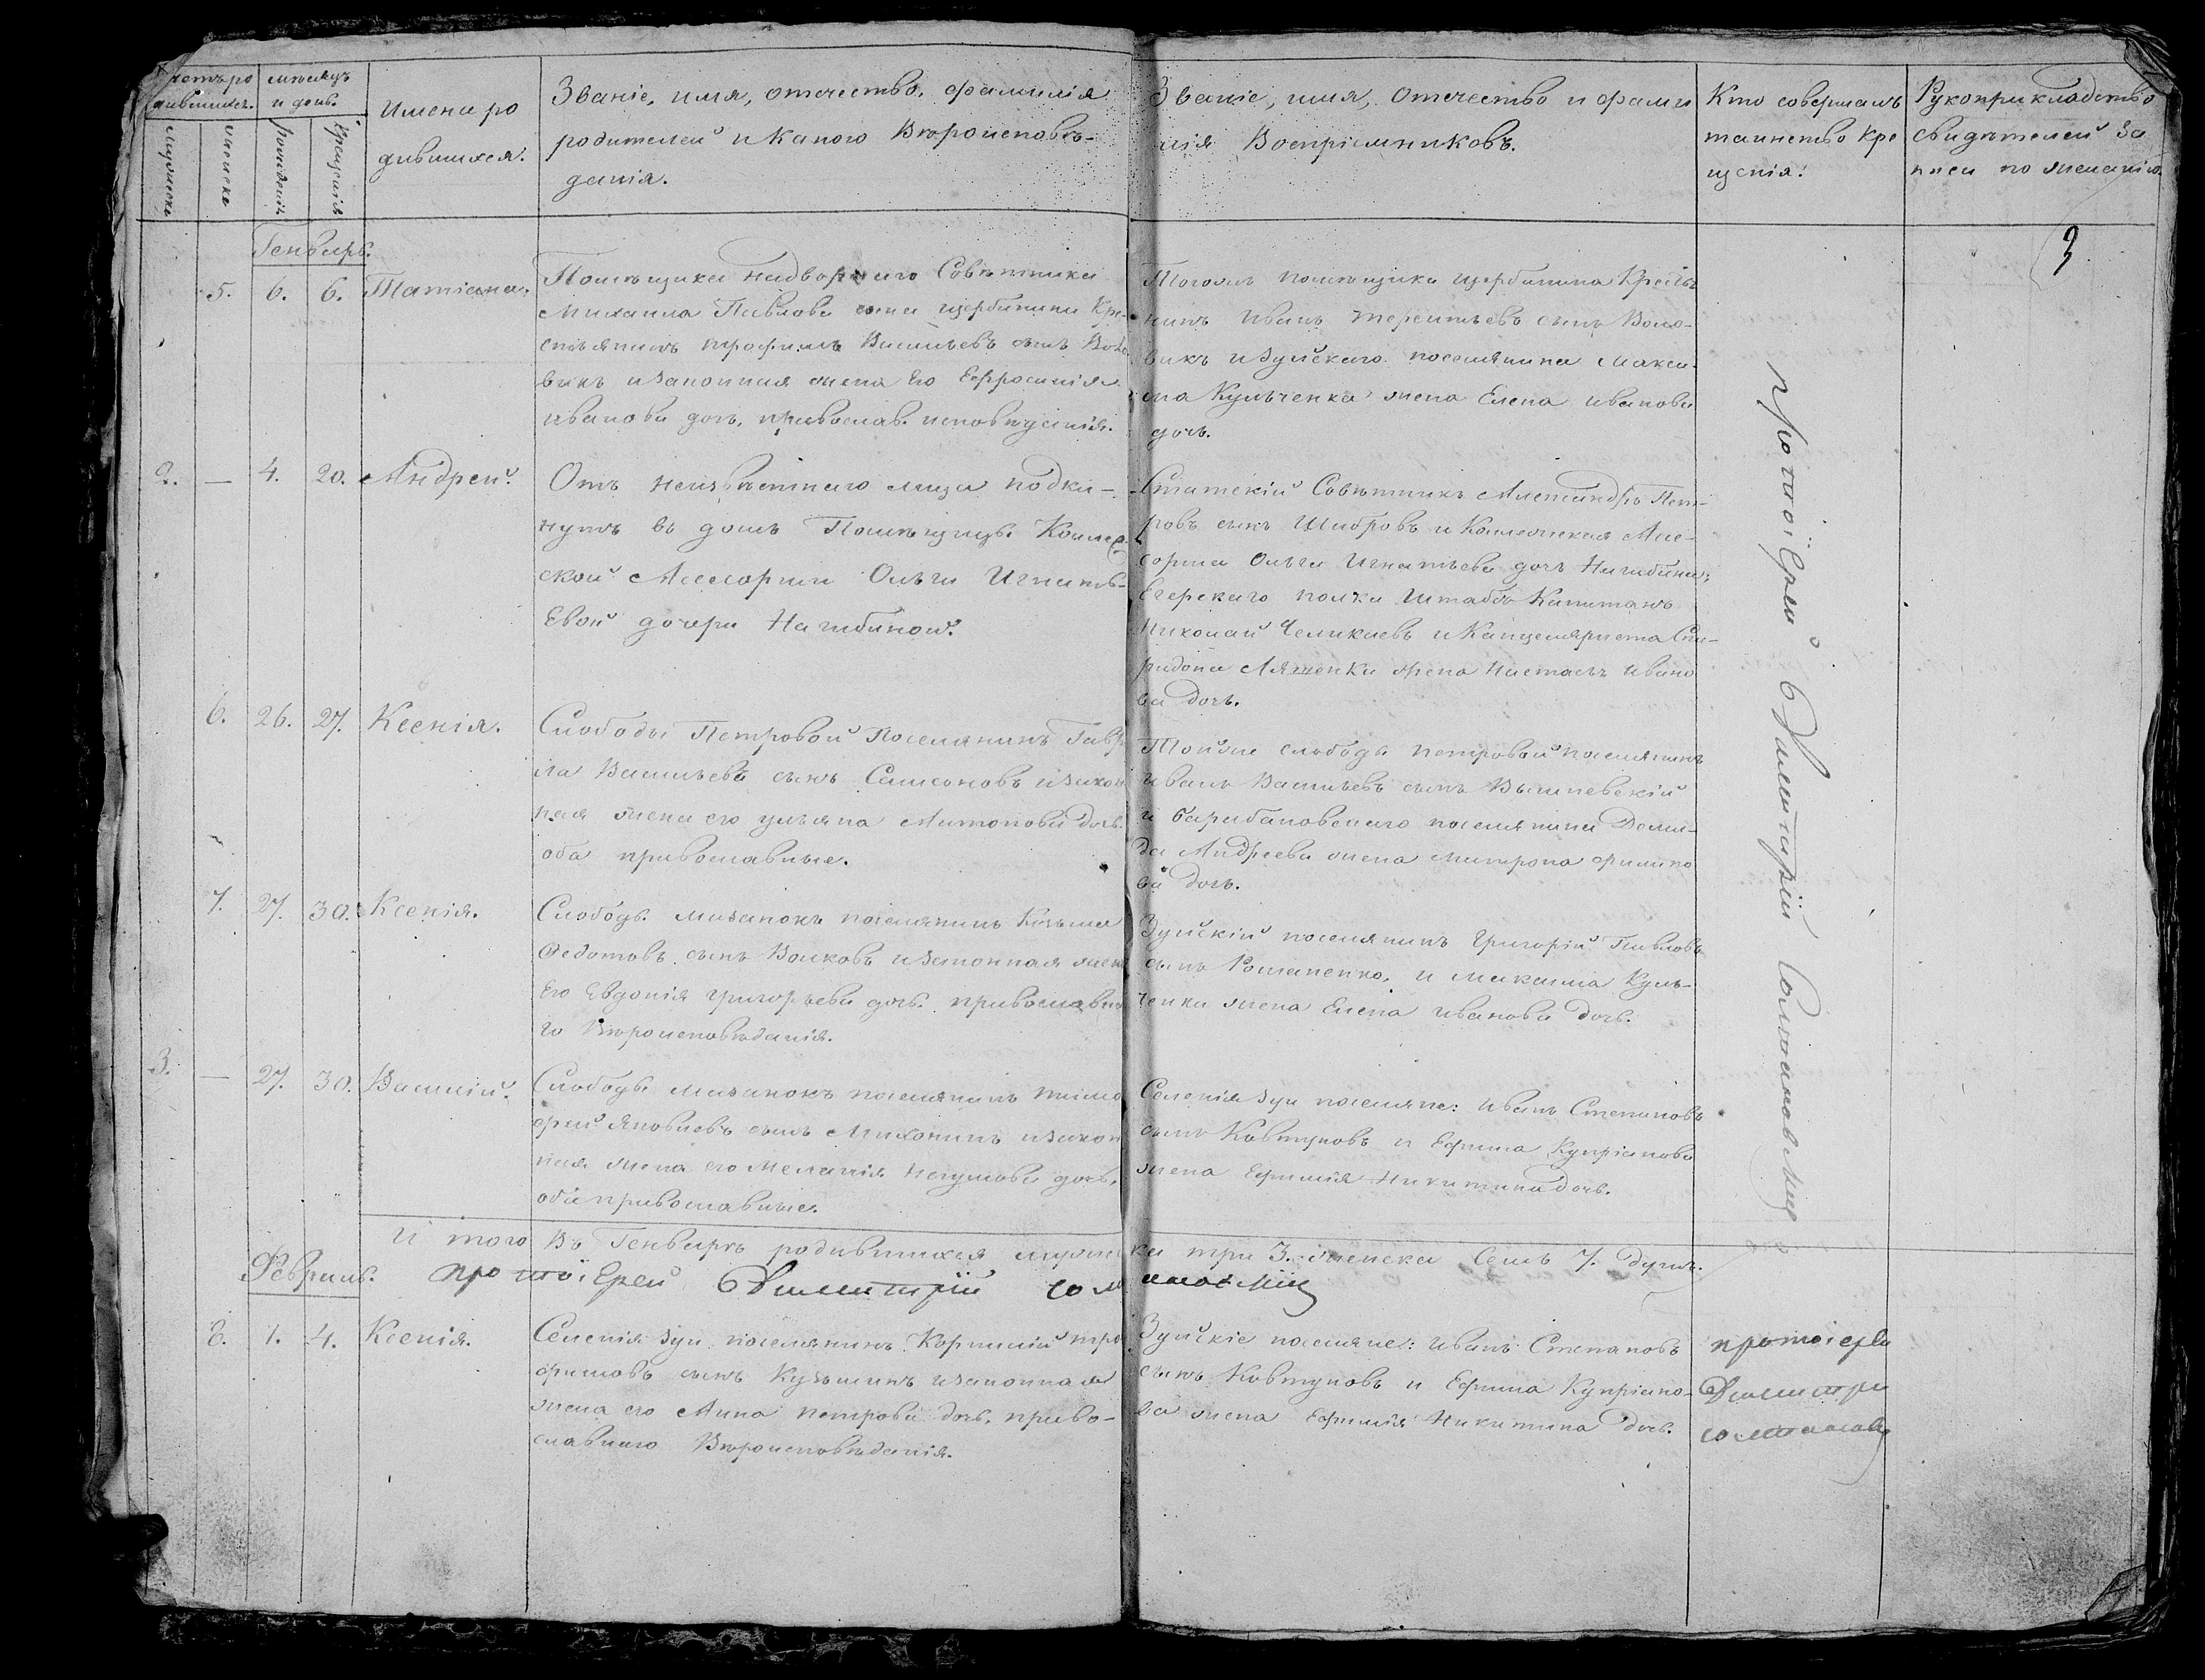 Счетъ ро
дившихся.
мѣсяцъ
и день.
Имена ро
дившихся.
Званіе, имя, отечество, фамилія
родителей и какого Вѣроисповѣ-
данія.
Званіе, имя, отечество и фами
лія Воспріемниковъ.
Кто совершалъ
таинство кре
щенія.
Рукоприкладство
свидѣтелей за
писи по желанію.
Мужеска
женска
рожденія
крещенія
3
Генварь.
5. 6. 6. Татіана.
Помѣщика надворнаго Совѣтника
Михаила Павлова сына Щербинина Кре-
стьянинъ Трофимъ Васильевъ сынъ
викъ и законная жена Его Ефросинія
иванова дочь, православ. исповѣданія.
Тогожъ помѣщика Щербинина Крестья
нинъ Иванъ Терентьевъ сынъ Воло-
викъ и Зуйскаго поселянина Макси-
ма Кульченка жена Елена иванова
дочь.
2. — 4. 20. Андрей.
Отъ неизвѣстнаго лица подки-
нутъ въ домъ Помѣщицы Коллеж-
ской Асессорши Ольги Игнатъ-
Евой дочери Нагибиной.
Статскій Совѣтникъ Александръ Пет-
ровъ сынъ и Коллежская Асес-
сорша Ольга Игнатьева дочь Нагибина;
Егерскаго полка Штабсъ Капитанъ
Николай и Канцеляриста Спи-
ридона жена Настасья Ивано
ва дочь.
6. 26. 27. Ксенія.
Слободы Петровой Поселянинъ Гаври
ла Васильевъ сынъ Самсоновъ и закон
ная жена его ульяна Антонова дочь.
оба православные.
Тойже слободы петровой поселянинъ
Иванъ Васильевъ сынъ Вышневскій
и барабановскаго поселянина Деми-
да Андреева жена Митрона филипо
ва дочь.
7. 27. 30. Ксенія.
Слободы Мазанокъ поселянинъ Козьма
Федотовъ сынъ Волковъ и законная жена
Его Евдокія григорьева дочь. православна
го Вѣроисповѣданія.
Зуйскій поселянинъ Григорій Павловъ
сынъ Романенко, и Максима Куль-
ченки жена Елена иванова дочь.
3. — 27. 30. Василій.
Слободы Мазанокъ поселянинъ тимо
фей Яковлевъ сынъ и закон
ная жена его Меланія Наумова дочь,
оба православные.
Селенія Зуи поселяне: иванъ Степановъ
сынъ Ковтуновъ и Ефима Купріанова
жена Ефимія Никитина дочь.
протоіерей Димитрій
И того Въ Генварѣ родившихся мужеска три 3. женска Семь 7. душъ.
протоіерей Димитрій
Февраль.
8. 1. 4. Ксенія.
Селенія Зуи поселянинъ Корнилій тро
фимовъ сынъ Кузьминъ и законная
жена его Анна петрова дочь, право-
славнаго Вѣроисповѣданія.
Зуйскіе поселяне: иванъ Степановъ
сынъ Ковтуновъ и Ефима Купріано-
ва жена Ефимія Никитина дочь.
протоіерей
Димитрій